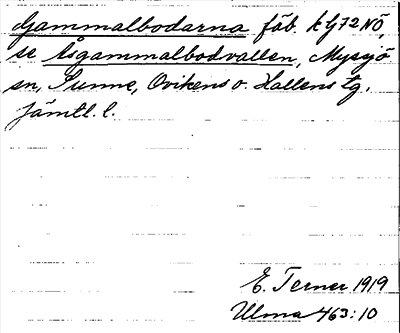 Gammalbodarna fäb. k G72NÖ,
se Åsgammalbodvallen, Myssjö
sn, Sunne, Ovikens o. Hallens tg,
Jämtl. l.
E. Terner 1919
Ulma 463:10